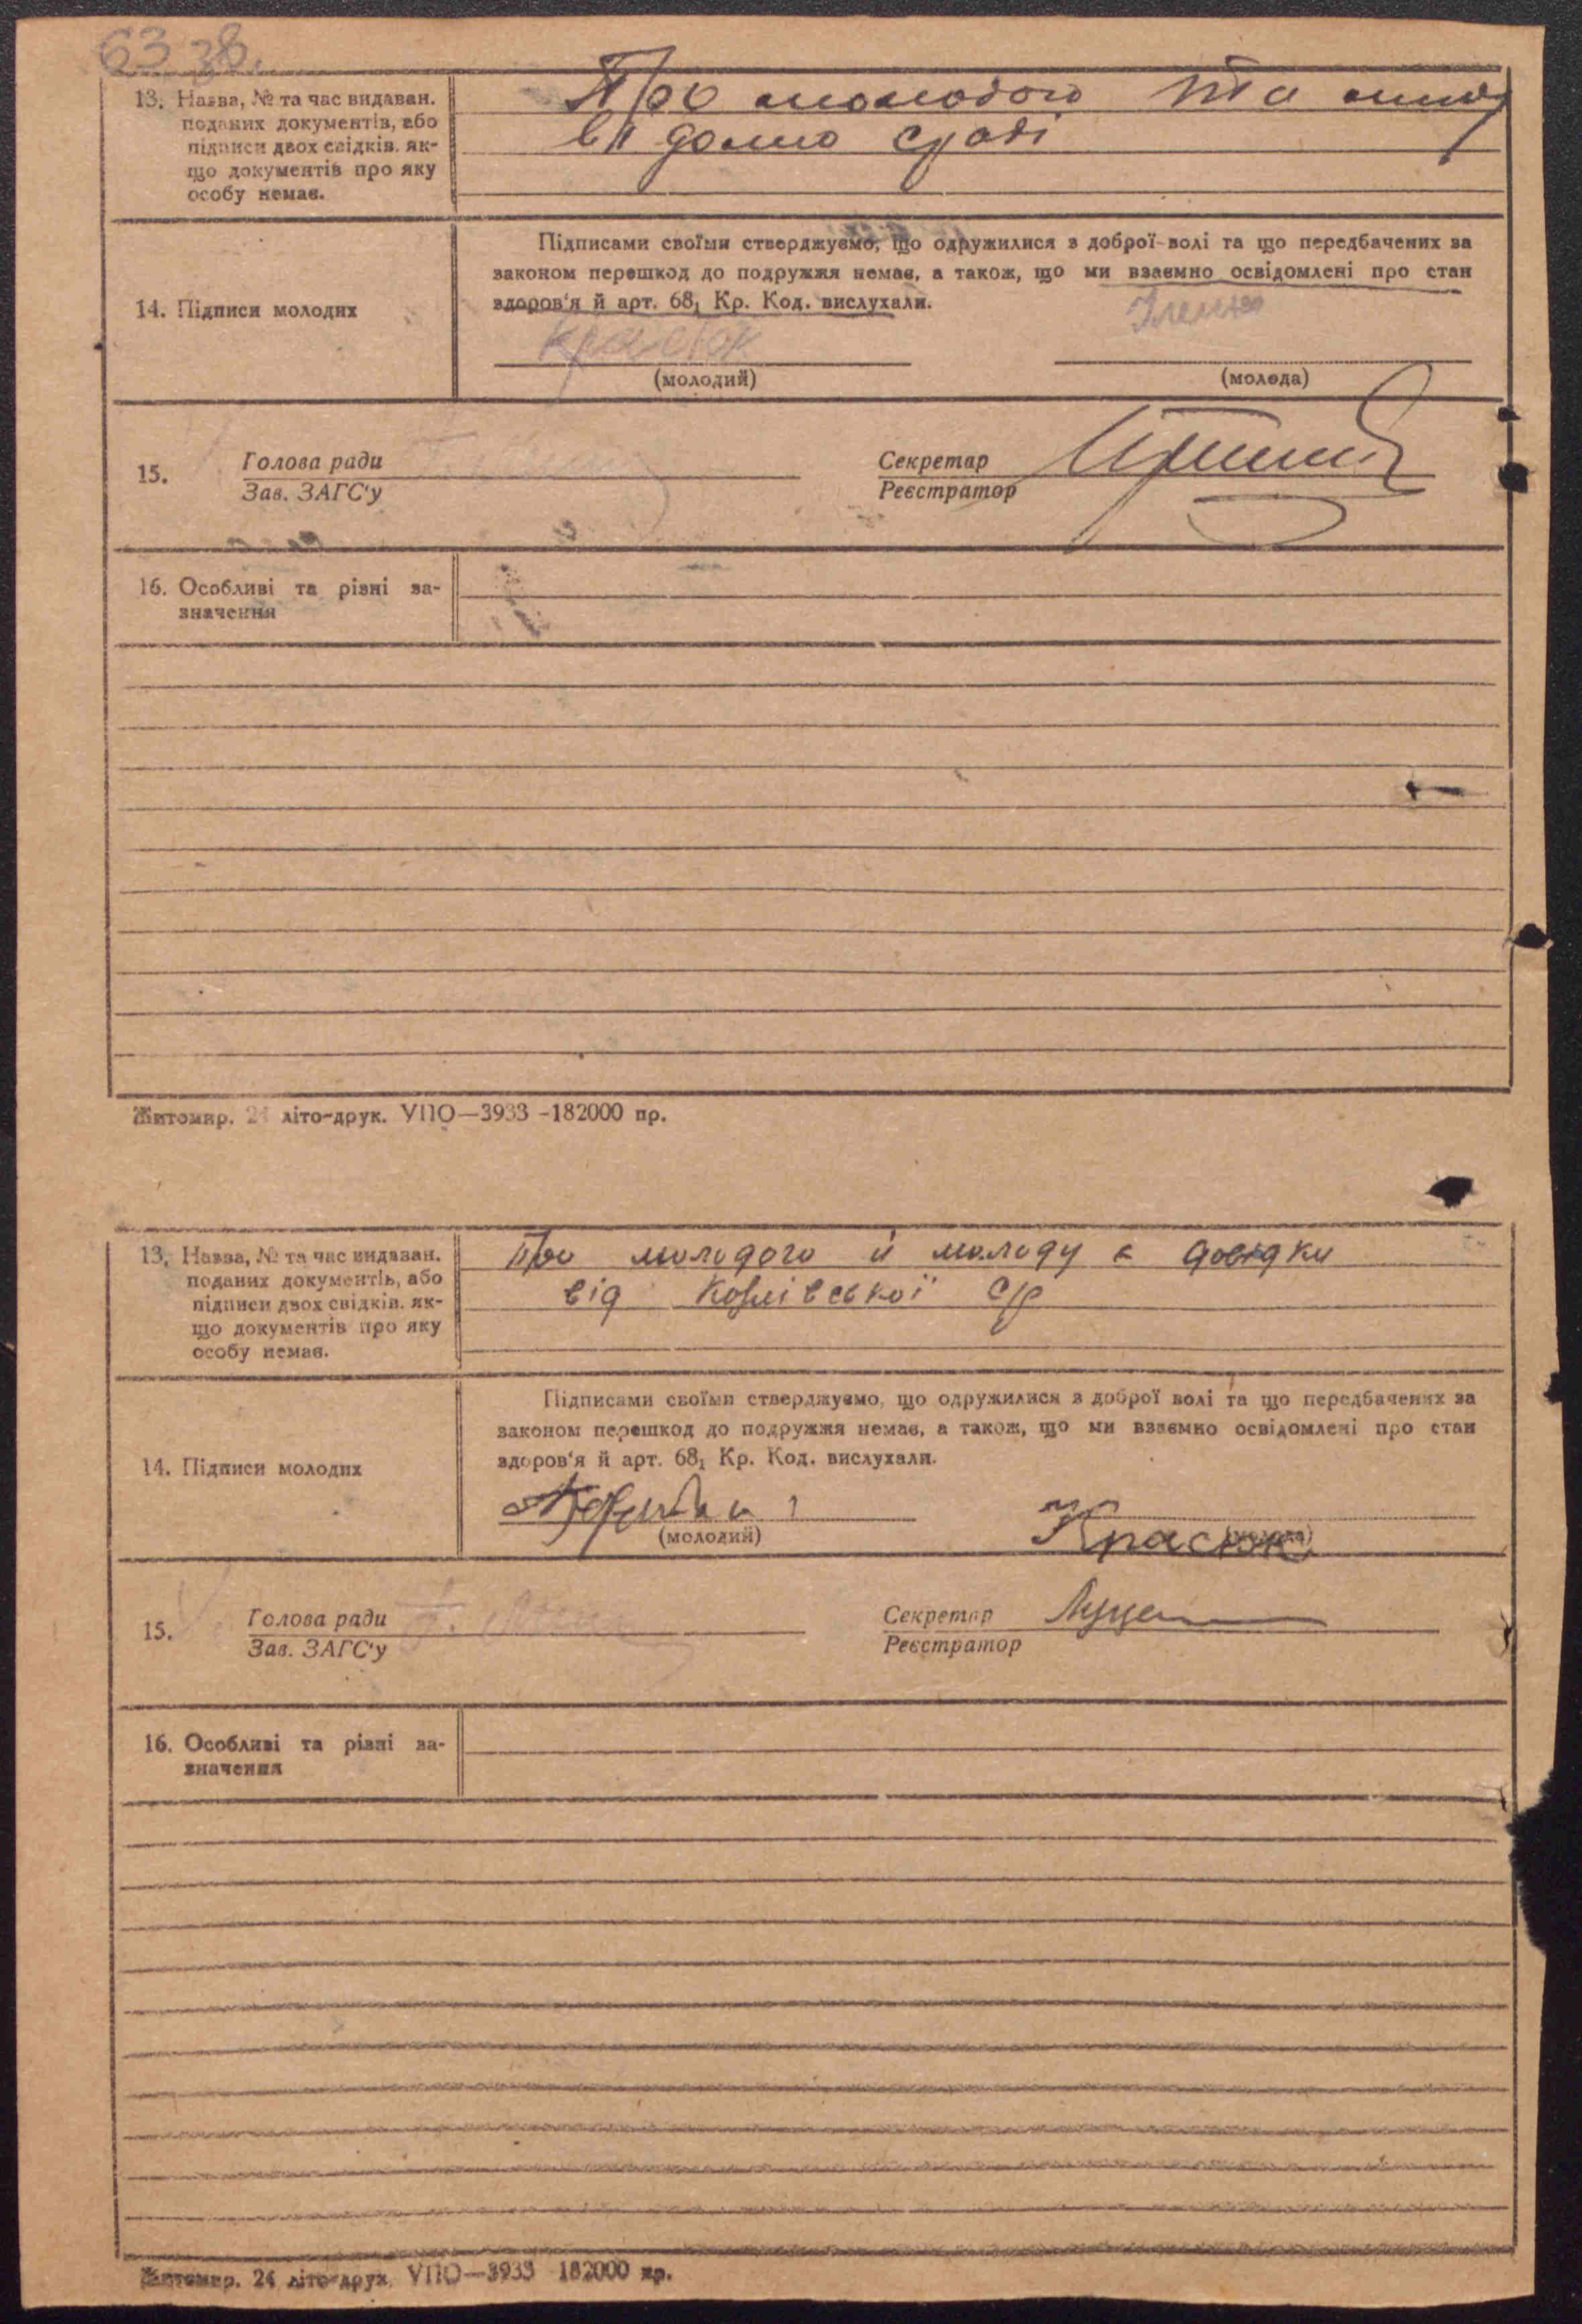 63 зв.
13. Назва, № та час видаван. поданих документів, або підписи двох свідків, якщо документів про яку особу немає.
Про молодого та молоду
відомо с/раді
Підписами своїми стверджуємо, що одружилися з доброї волі та що передбачених за
законом перешкод до подружжя немає, а також, що ми взаємно освідомлені про стан
здоров'я й арт. 68₁ Кр. Код. вислухали.
14. Підписи молодих
Красюк
(молодий) (молода)
15. Голова ради Секретар
Зав. ЗАГС'у Реєстратор
16. Особливі та різні за-
значення
Житомир. 24 літо-друк. УПО—3933 -182000 пр.
13. Назва, № та час видаван.
поданих документів, або
підписи двох свідків, як-
що документів про яку
особу немає.
Про молодого й молоду є довідки
від с/р
Підписами своїми стверджуємо, що одружилися з доброї волі та що передбачених за
законом перешкод до подружжя немає, а також, що ми взаємно освідомлені про стан
здоров'я й арт. 68₁ Кр. Код. вислухали.
14. Підписи молодих
Красюк
(молодий) (молода)
15. Голова ради Секретар
Зав. ЗАГС'у Реєстратор
16. Особливі та різні за-
значення
Житомир. 24 літо-друк. УПО—3933 182000 пр.